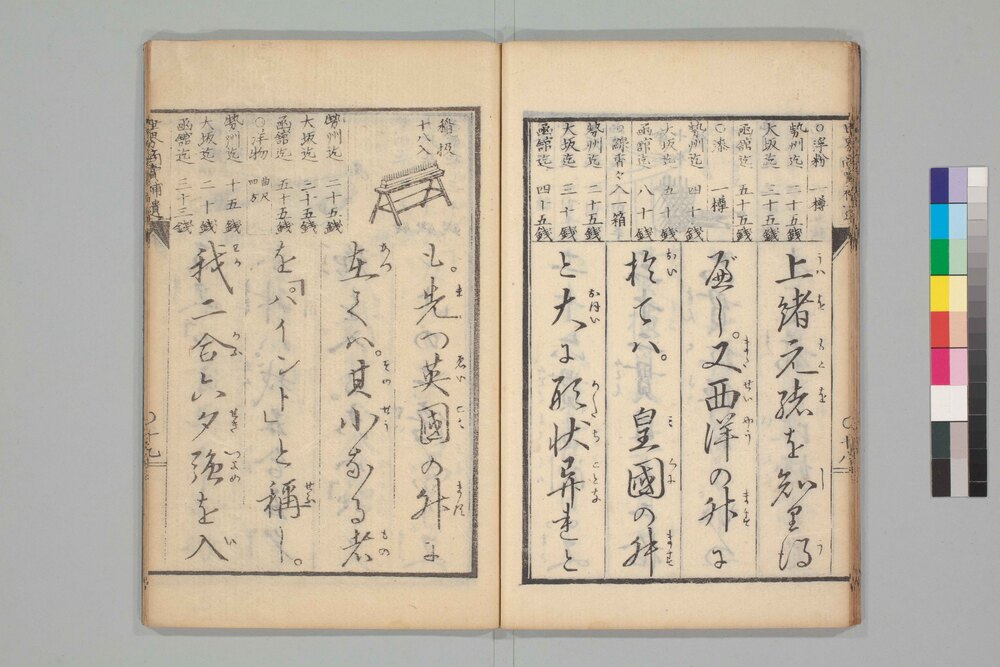 〇浮粉 一樽
勢州迄 二十五銭
大坂迄 三十五銭
函舘迄 五十五銭
〇漆 一樽
勢州迄 四十銭
大坂迄 五十銭
函舘迄 八十銭
入一箱
勢州迄 二十銭
大坂迄 三十銭
函舘迄 四十五銭
上緒元緒を知里得
べし。又西洋の舛に
於てハ。皇國の舛
と大に形状異連と
稲扱
十八入
勢州迄 二十五銭
大坂迄 二十五銭
函舘迄 五十五銭
〇浮物 曲尺四方
勢州迄 十五銭
大坂迄 二十銭
函舘迄 三十三銭
も。先つ英國の舛に
在てハ。其小なる者
を「パイント」と稱し。
我二合六夕強を入